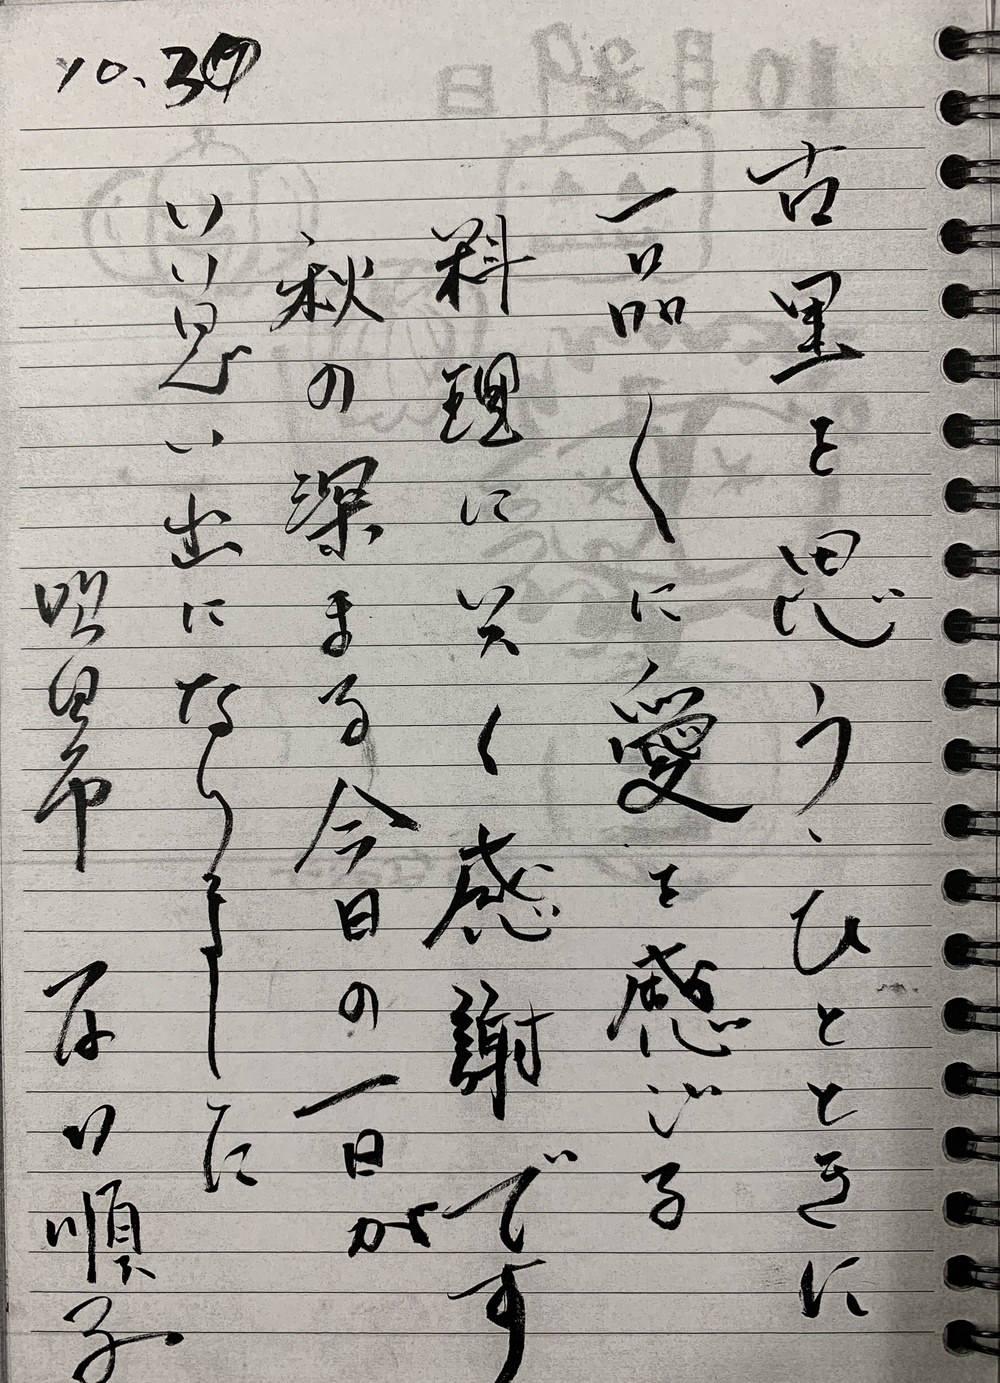 10.30
古里を思う、ひとときに
一品〱に愛を感じる
料理に深く感謝です
秋の深まる今日の一日が
いい思い出になりました
順子
10月29日